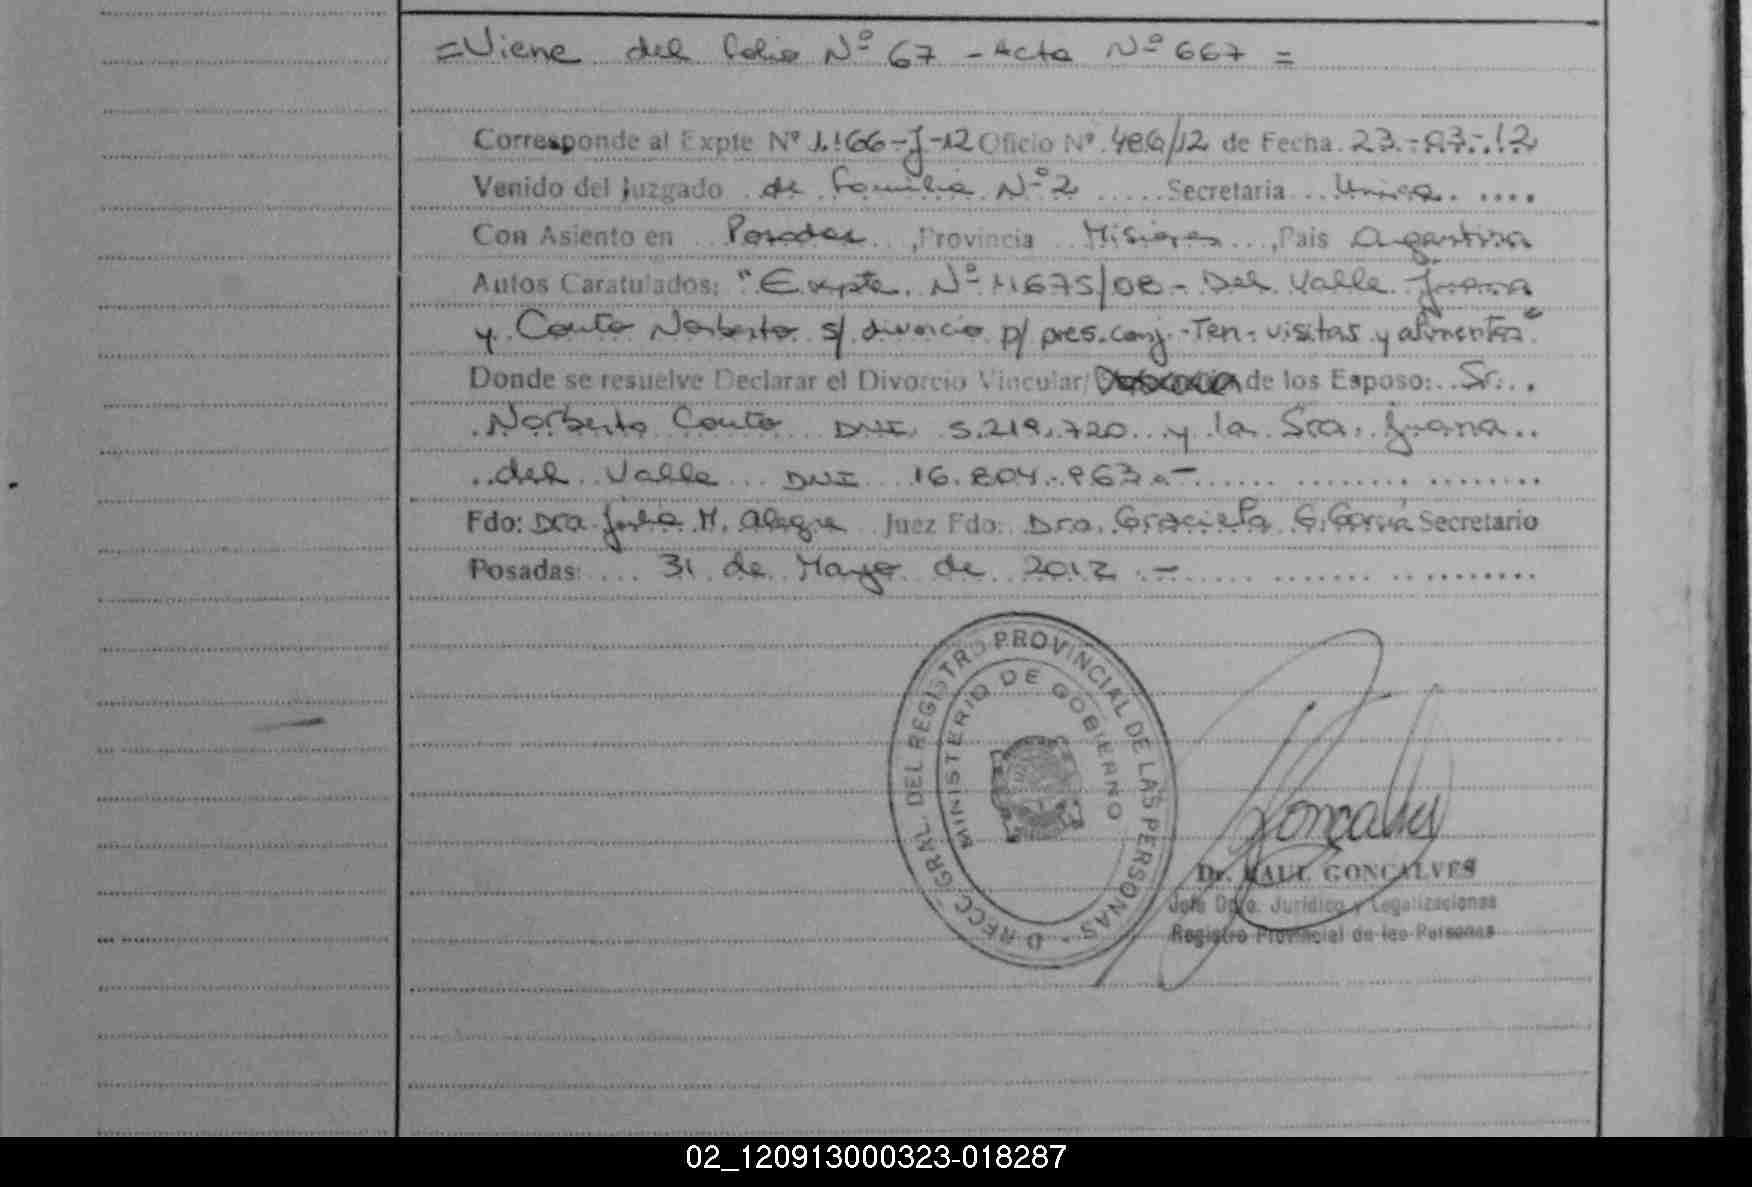 =Viene del folio Nº 67 - Acta Nº 667 =
Corresponde al Expte Nº 1.166-J-12 Oficio Nº 486/12 de Fecha 23-03-12
Venido del Juzgado de Familia Nº 2 Secretaria Unica
Con Asiento en Posadas, Provincia Misiones, Pais Argentina
Autos Caratulados: "Expte. Nº 11675/08 - Del Valle Juana
y Couto Norberto s/ divorcio p/ pres. conj.-Ten- visitas y alimentos"
Donde se resuelve Declarar el Divorcio Vincular/ de los Esposo: Sr.
Norberto Couto DNI 5.219.720 y la Sra. Juana
del Valle DNI 16.804.963.-
Fdo: Dra. M. Alegre Juez Fdo: Dra. Graciela G. Garcia Secretario
Posadas: 31 de Mayo de 2012.-
DIRECC. GRAL. DEL REGISTRO PROVINCIAL DE LAS PERSONAS -
MINISTERIO DE GOBIERNO
Goncalves
Dr. RAUL GONCALVES
Jefe Dpto. Jurídico y Legalizaciones
Registro Provincial de las Personas
02_120913000323-018287